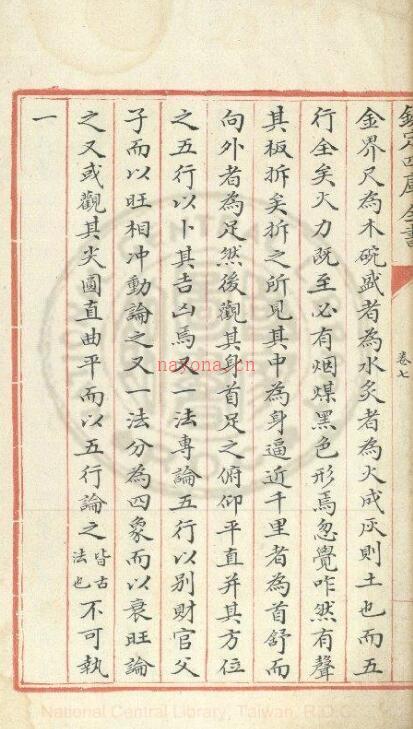 欽定四庫全書
卷七
金界尺為木碗盛者為水炙者為火成灰則土也而五
行全矣火力既至必有烟煤黑色形焉忽覺咋然有聲
其板拆矣拆之所見其中為身逼近千里者為首舒而
向外者為足然後觀其身首足之俯仰平直并其方位
之五行以卜其吉凶焉又一法專論五行以別財官父
子而以旺相冲動論之又一法分為四象而以衰旺論
之又或觀其尖圓直曲平而以五行論之皆古法也不可執
一
nayona.cn
National Central Library, Taiwan, R.O.C.